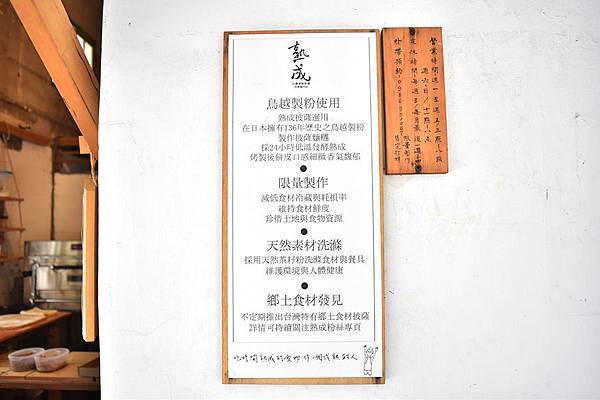 熟成
鳥越製粉使用
熟成披薩選用
在日本擁有136年歷史之鳥越製粉
製作披薩麵糰
採24小時低溫發酵熟成
烤製後餅皮口感細緻香氣馥郁
限量製作
減低食材冷藏與耗損率
維持食材鮮度
珍惜土地與食物資源
天然素材洗滌
採用天然茶籽粉洗滌食材與餐具
維護環境與人體健康
鄉土食材發見
不定期推出台灣特有鄉土食材披薩
詳情可持續關注熟成粉絲專頁
吃時間熟成的食物 作一個成熟的人
營業時間